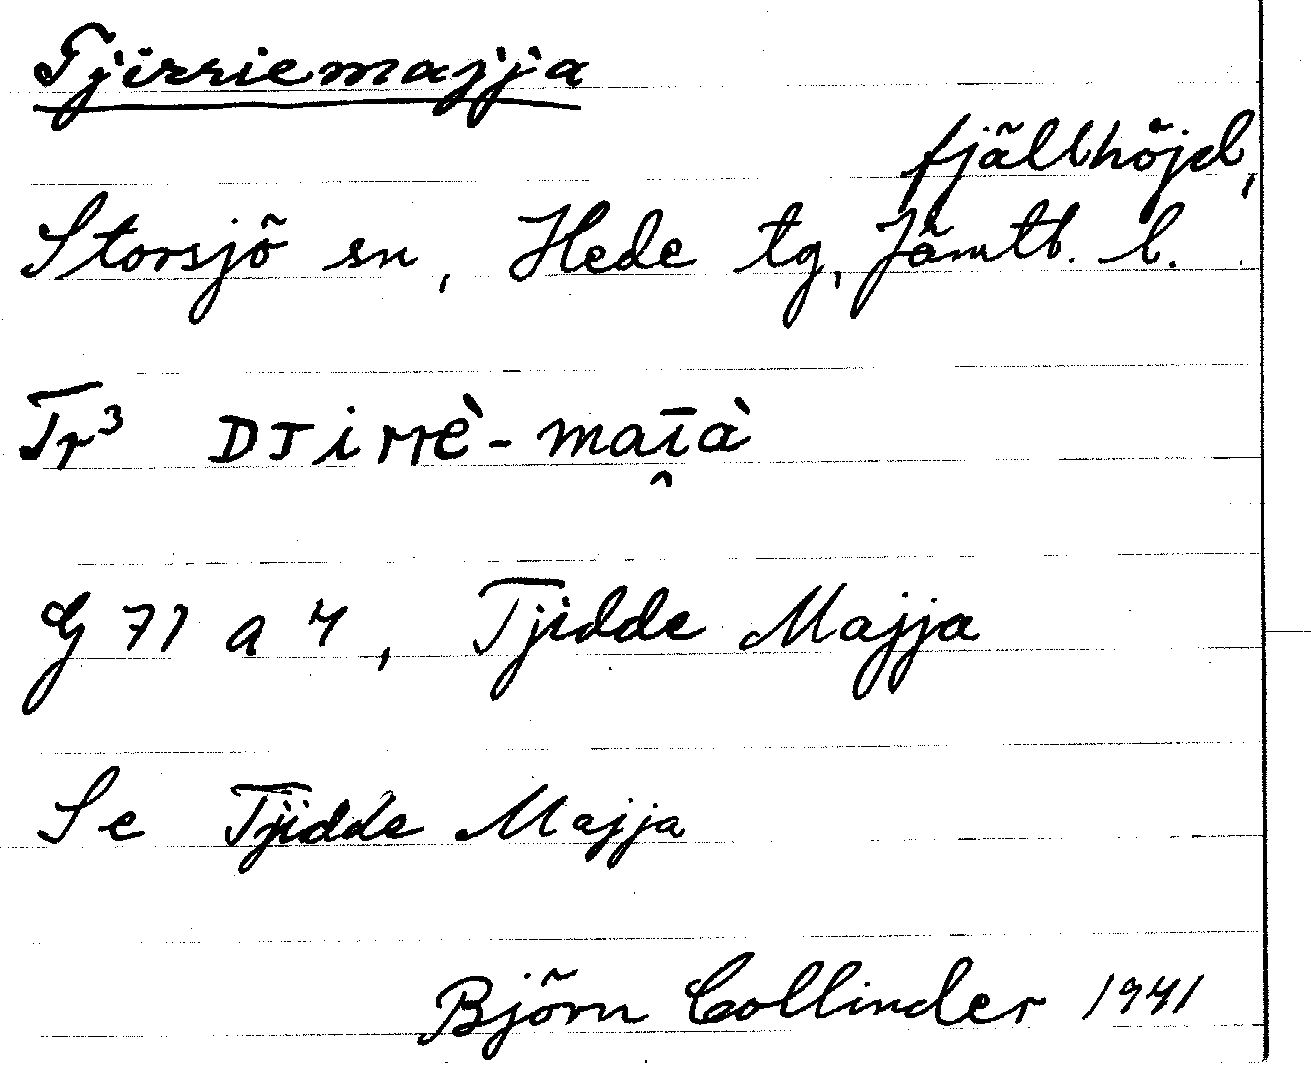 Tjirriemajja
fjällhöjd,
Storsjö sn, Hede tg, Jämtl. l.
Tr³ DJirrè-maīà
G 71 a 4, Tjidde Majja
Se Tjidde Majja
Björn Collinder 1941